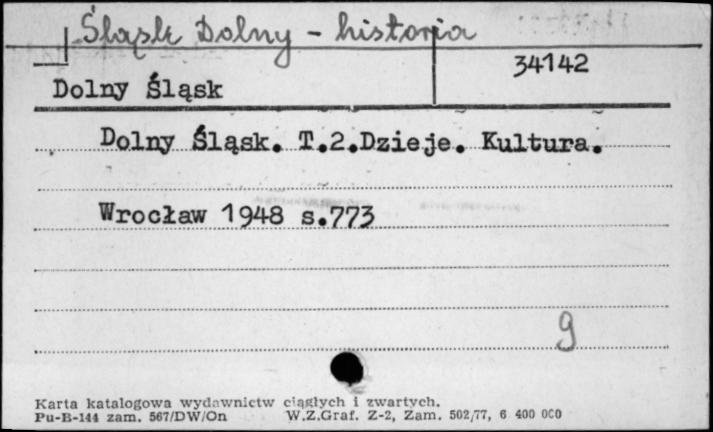 Śląsk Dolny - historia
34142
Dolny Śląsk
Dolny Śląsk. T.2.Dzieje. Kultura.
Wrocław 1948 s.773
9
Karta katalogowa wydawnictw ciągłych i zwartych.
Pu-B-144 zam. 567/DW/On W.Z.Graf. Z-2, Zam. 502/77, 6 400 000